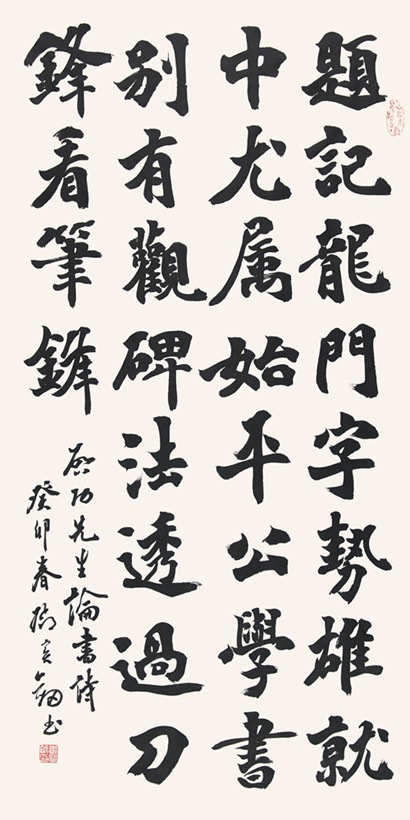 題記龍門字勢雄就
中尤属始平公學書
别有觀碑法透過刀
鋒看筆鋒
啟功先生論書詩
癸卯春书